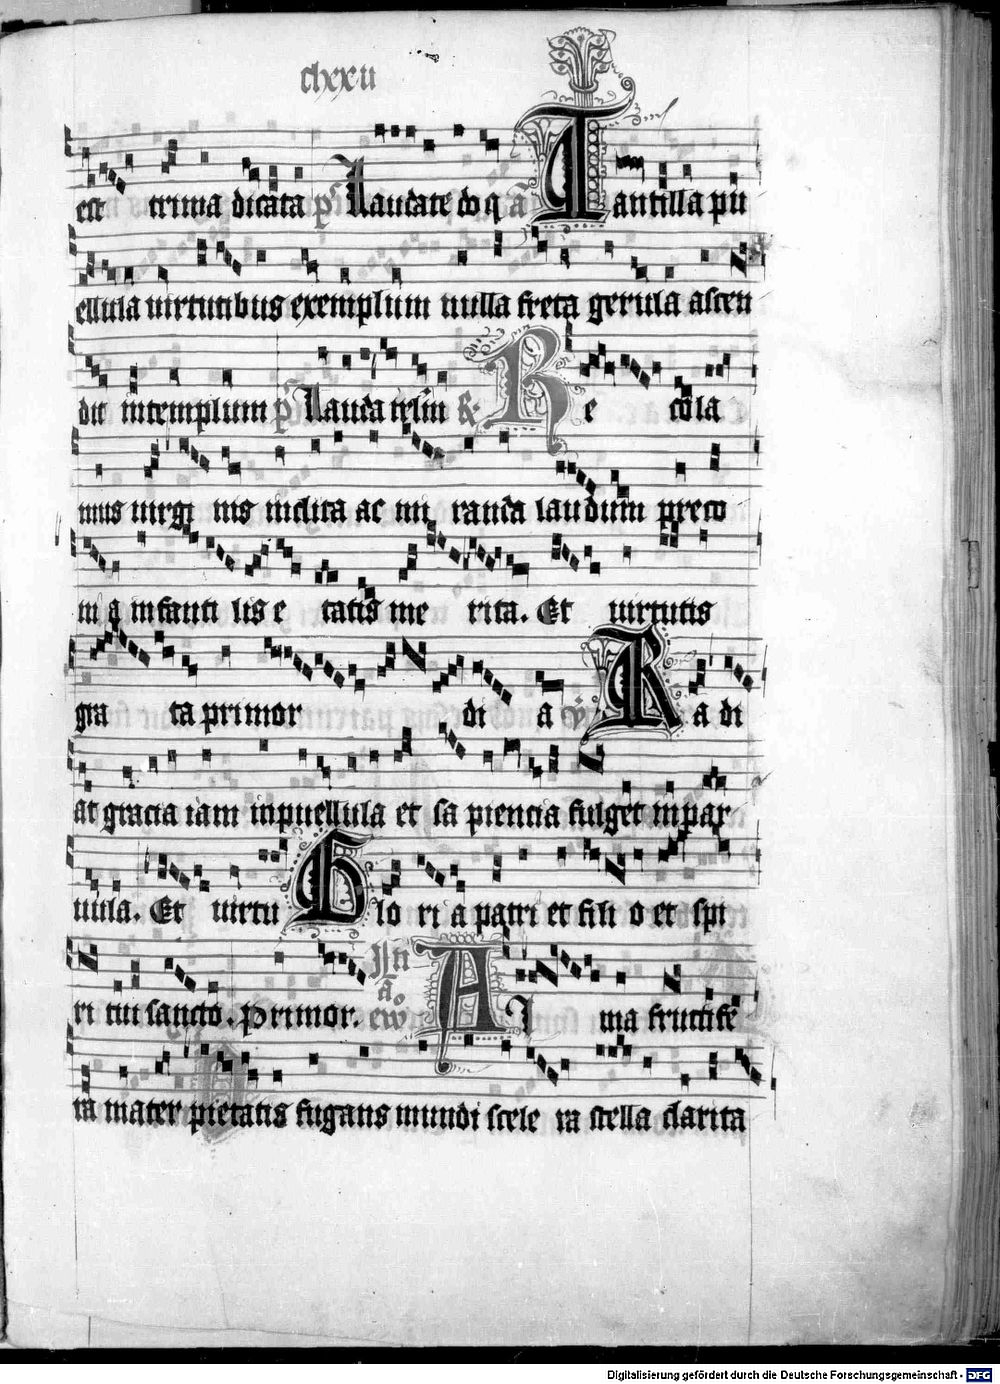 clxxii
est trima dicata ps Laudate do q a Tantilla pu
ellula uirtutibus exemplum nulla freta gerula ascen
dit intemplum ps Lauda ierlm R. Re cola
mus uirgi nis inclita ac mi randa laudum preco
ni a infanti lis e tatis me rita. Et uirtutis
gra ta primor di a V Ra di
at gracia iam inpuellula et sa piencia fulget inpar
uula. Et uirtu Glo ri a patri et fili o et spi
ri tui sancto. Primor. In ew a Al ma fructife
ra mater pietatis fugans mundi scele ra stella clarita
Digitalisierung gefördert durch die Deutsche Forschungsgemeinschaft - DFG